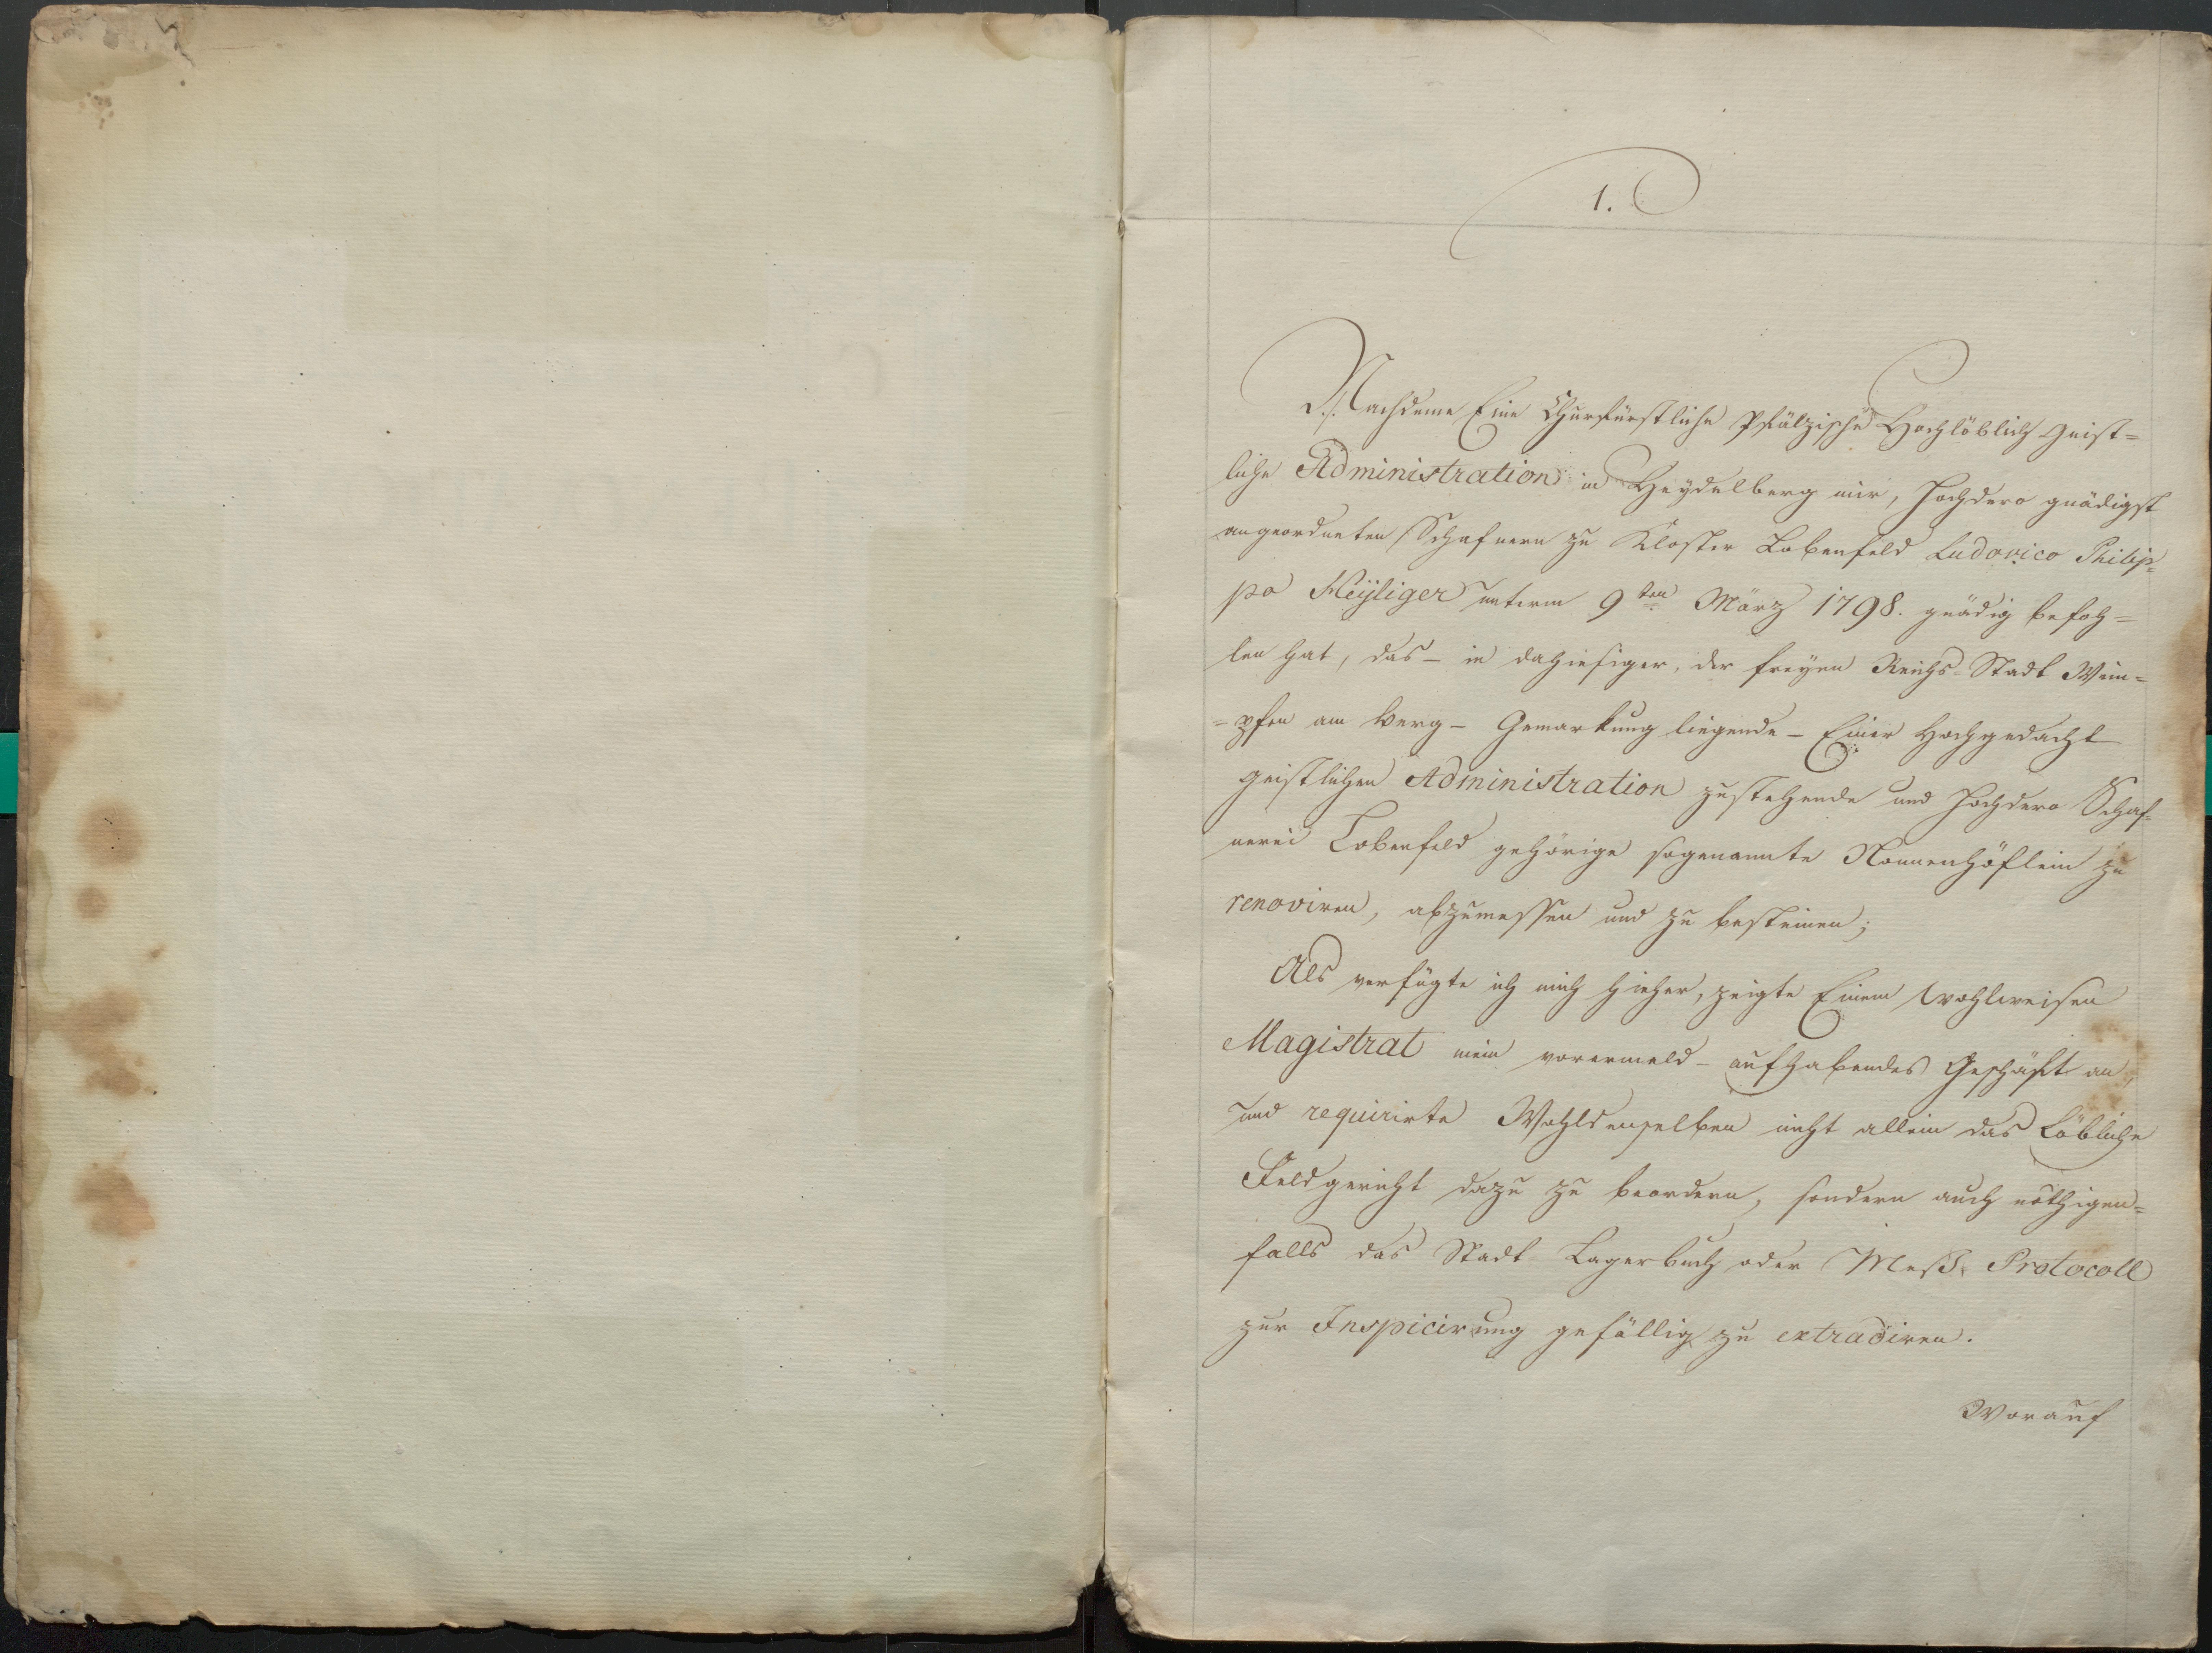 1.
Nachdeme Eine Churfürstliche Pfälzische Hochlöblich Geist=
liche Administration in Heydelberg mir, Hochdero gnädigst
angeordneten Schafnern zu Kloster Lobenfeld Ludovico Philip=
po Heÿliger unterm 9ten März 1798. gnädig befoh=
len hat, das – in dahiesiger, der freyen Reichs-Stadt Wim=
=pfen am Berg – Gemarkung liegende – Einer Hochgedacht
geistlichen Administration zustehende und Hochdero Schaf=
nerei Lobenfeld gehörige sogenannte Nonnenhöflein zu
renoviren, abzumessen und zu besteinen;
Als verfügte ich mich hieher, zeigte Einem Wohlweisen
Magistrat mein vorermeld – aufhabendes Geschäft an,
und requirirte Wohldenselben nicht allein das Löbliche
Feldgericht dazu zu beordern, sondern auch nöthigen=
falls das Stadt Lagerbuch oder Meß-Protocoll
zur Inspicirung gefällig zu extradiren.
Worauf